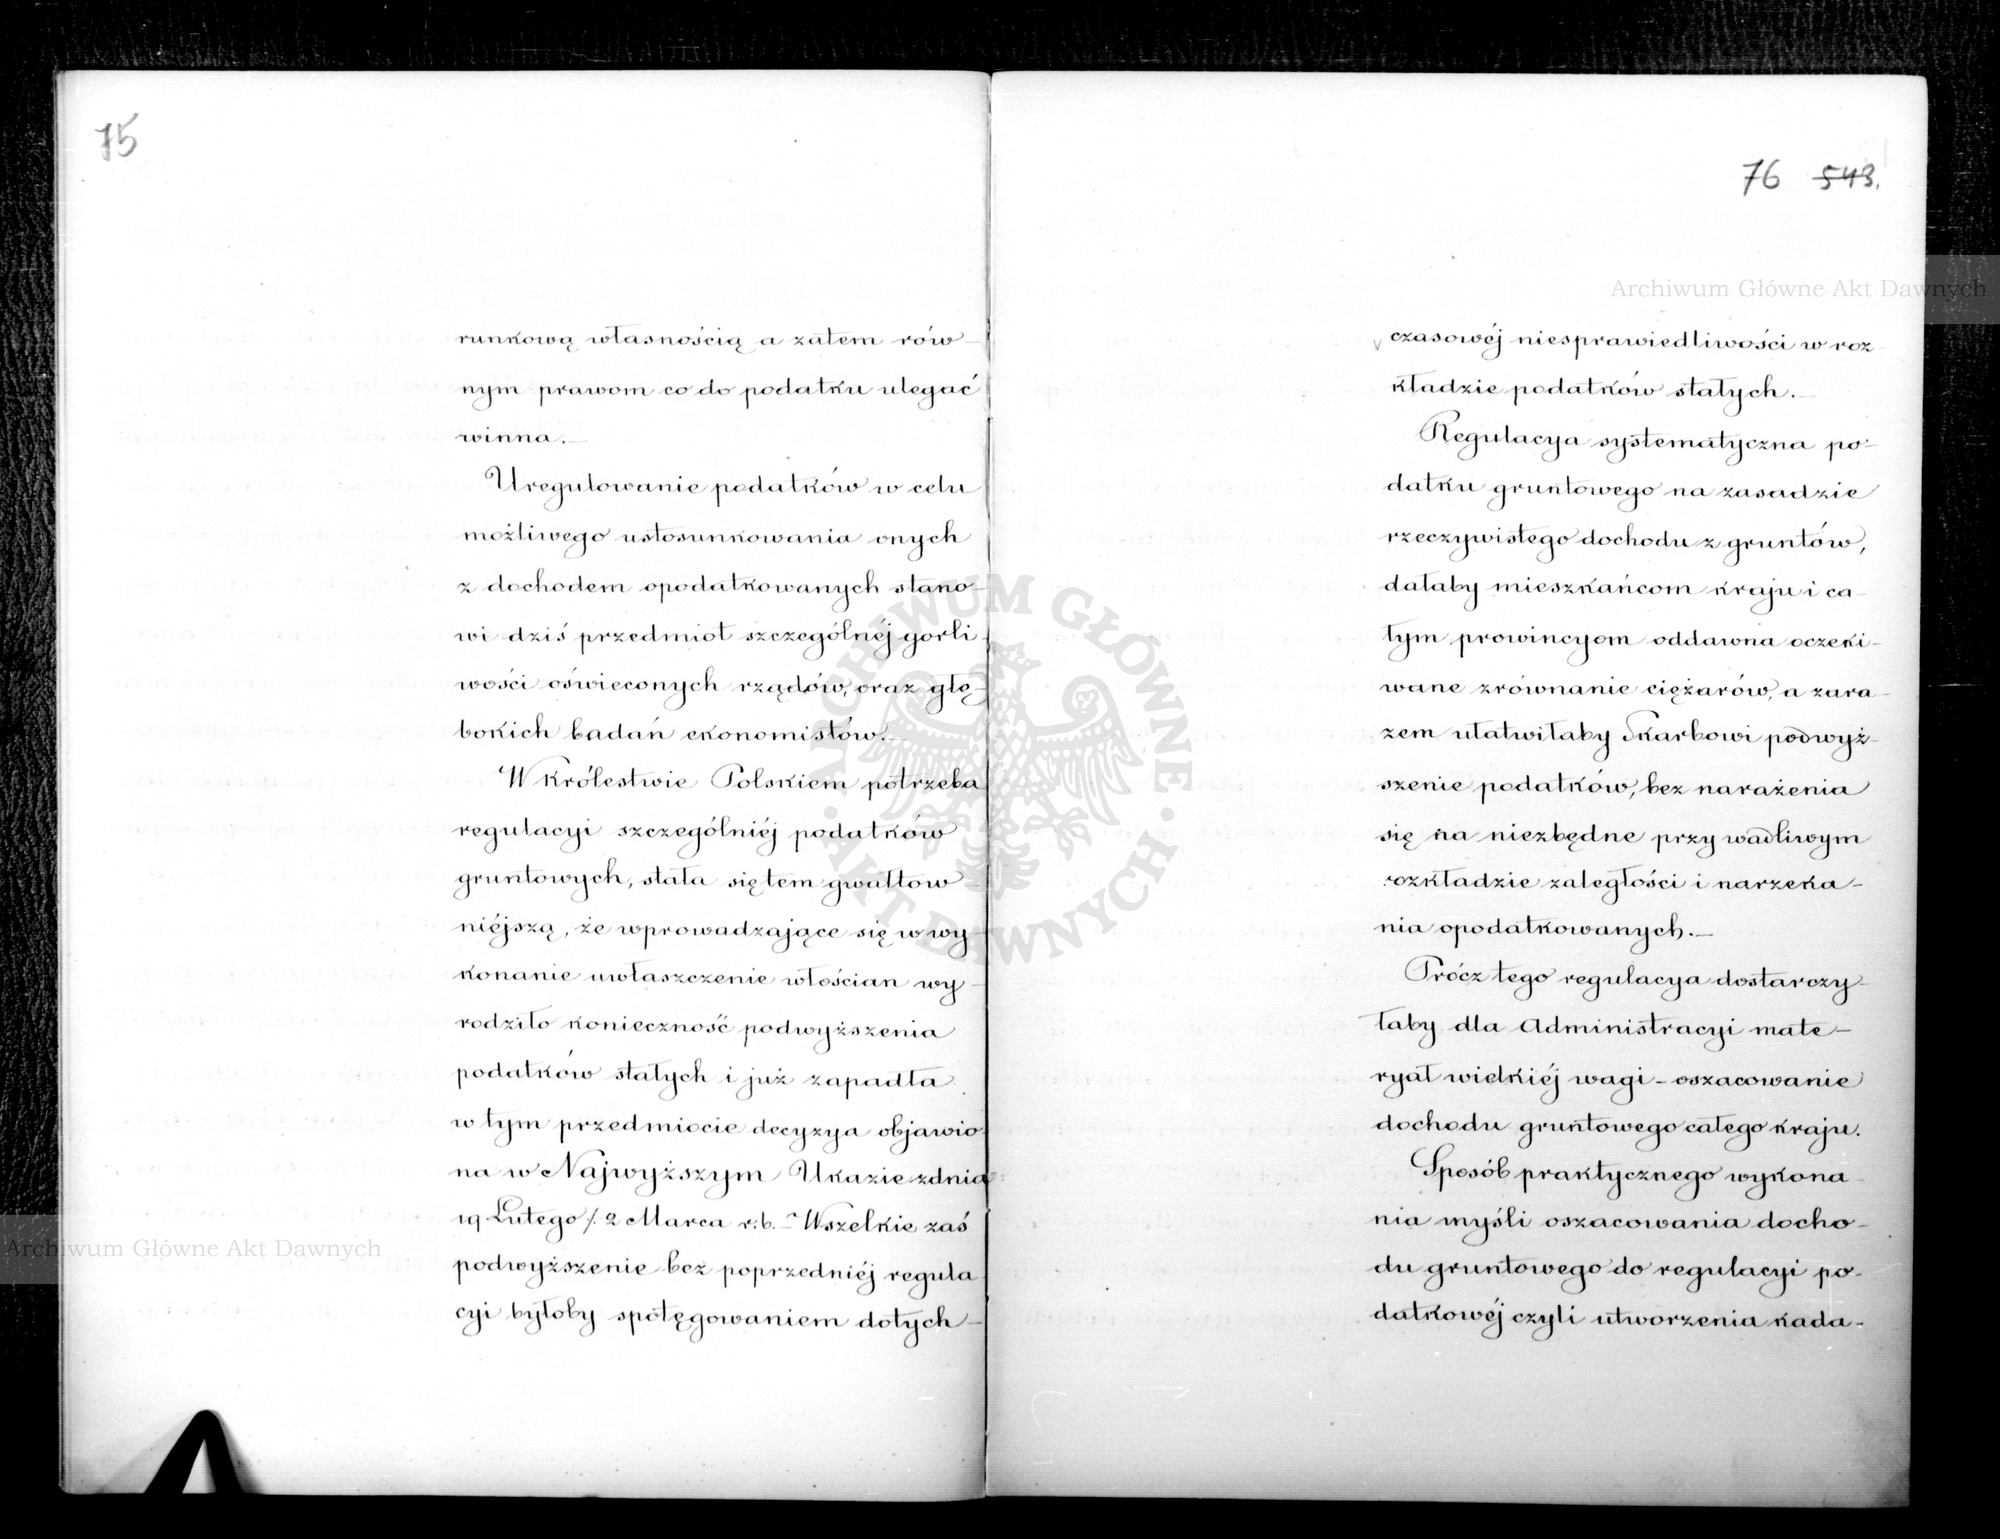 75
runkową własnością a zatem rów-
nym prawom co do podatku ulegać
winna.-
Uregulowanie podatków w celu
możliwego ustosunkowania onych
z dochodem opodatkowanych stano-
wi dziś przedmiot szczególnéj gorli-
wości oświeconych rządów, oraz głę-
bokich badań ekonomistów.-
W Królestwie Polskiem potrzeba
regulacyi szczególniéj podatków
gruntowych, stała się tem gwałtow-
niéjszą, że wprowadzające się w wy-
konanie uwłaszczenie włościan wy-
rodziło konieczność podwyższenia
podatków stałych i już zapadła
w tym przedmiocie decyzya objawio-
na w Najwyższym Ukazie z dnia
19 Lutego /. 2 Marca r.b.- Wszelkie zaś
podwyższenie bez poprzedniéj regula
cyi byłoby spotęgowaniem dotych-
76 543.
czasowéj niesprawiedliwości w roz-
kładzie podatków stałych.-
Regulacya systematyczna po-
datku gruntowego na zasadzie
rzeczywistego dochodu z gruntów,
dałaby mieszkańcom kraju i ca-
łym prowincyom oddawna oczeki-
wane zrównanie ciężarów, a zara-
zem ułatwiłaby Skarbowi podwyż-
szenie podatków, bez narażenia
się na niezbędne przy wadliwym
rozkładzie zaległości i narzeka-
nia opodatkowanych.-
Prócz tego regulacya dostarczy-
łaby dla Administracyi mate-
ryał wielkiéj wagi - oszacowanie
dochodu gruntowego całego kraju.
Sposób praktycznego wykona-
nia myśli oszacowania docho-
du gruntowego do regulacyi po-
datkowéj czyli utworzenia kada-
Archiwum Główne Akt Dawnych
Archiwum Główne Akt Dawnych
ARCHIWUM GŁÓWNE · AKT DAWNYCH ·